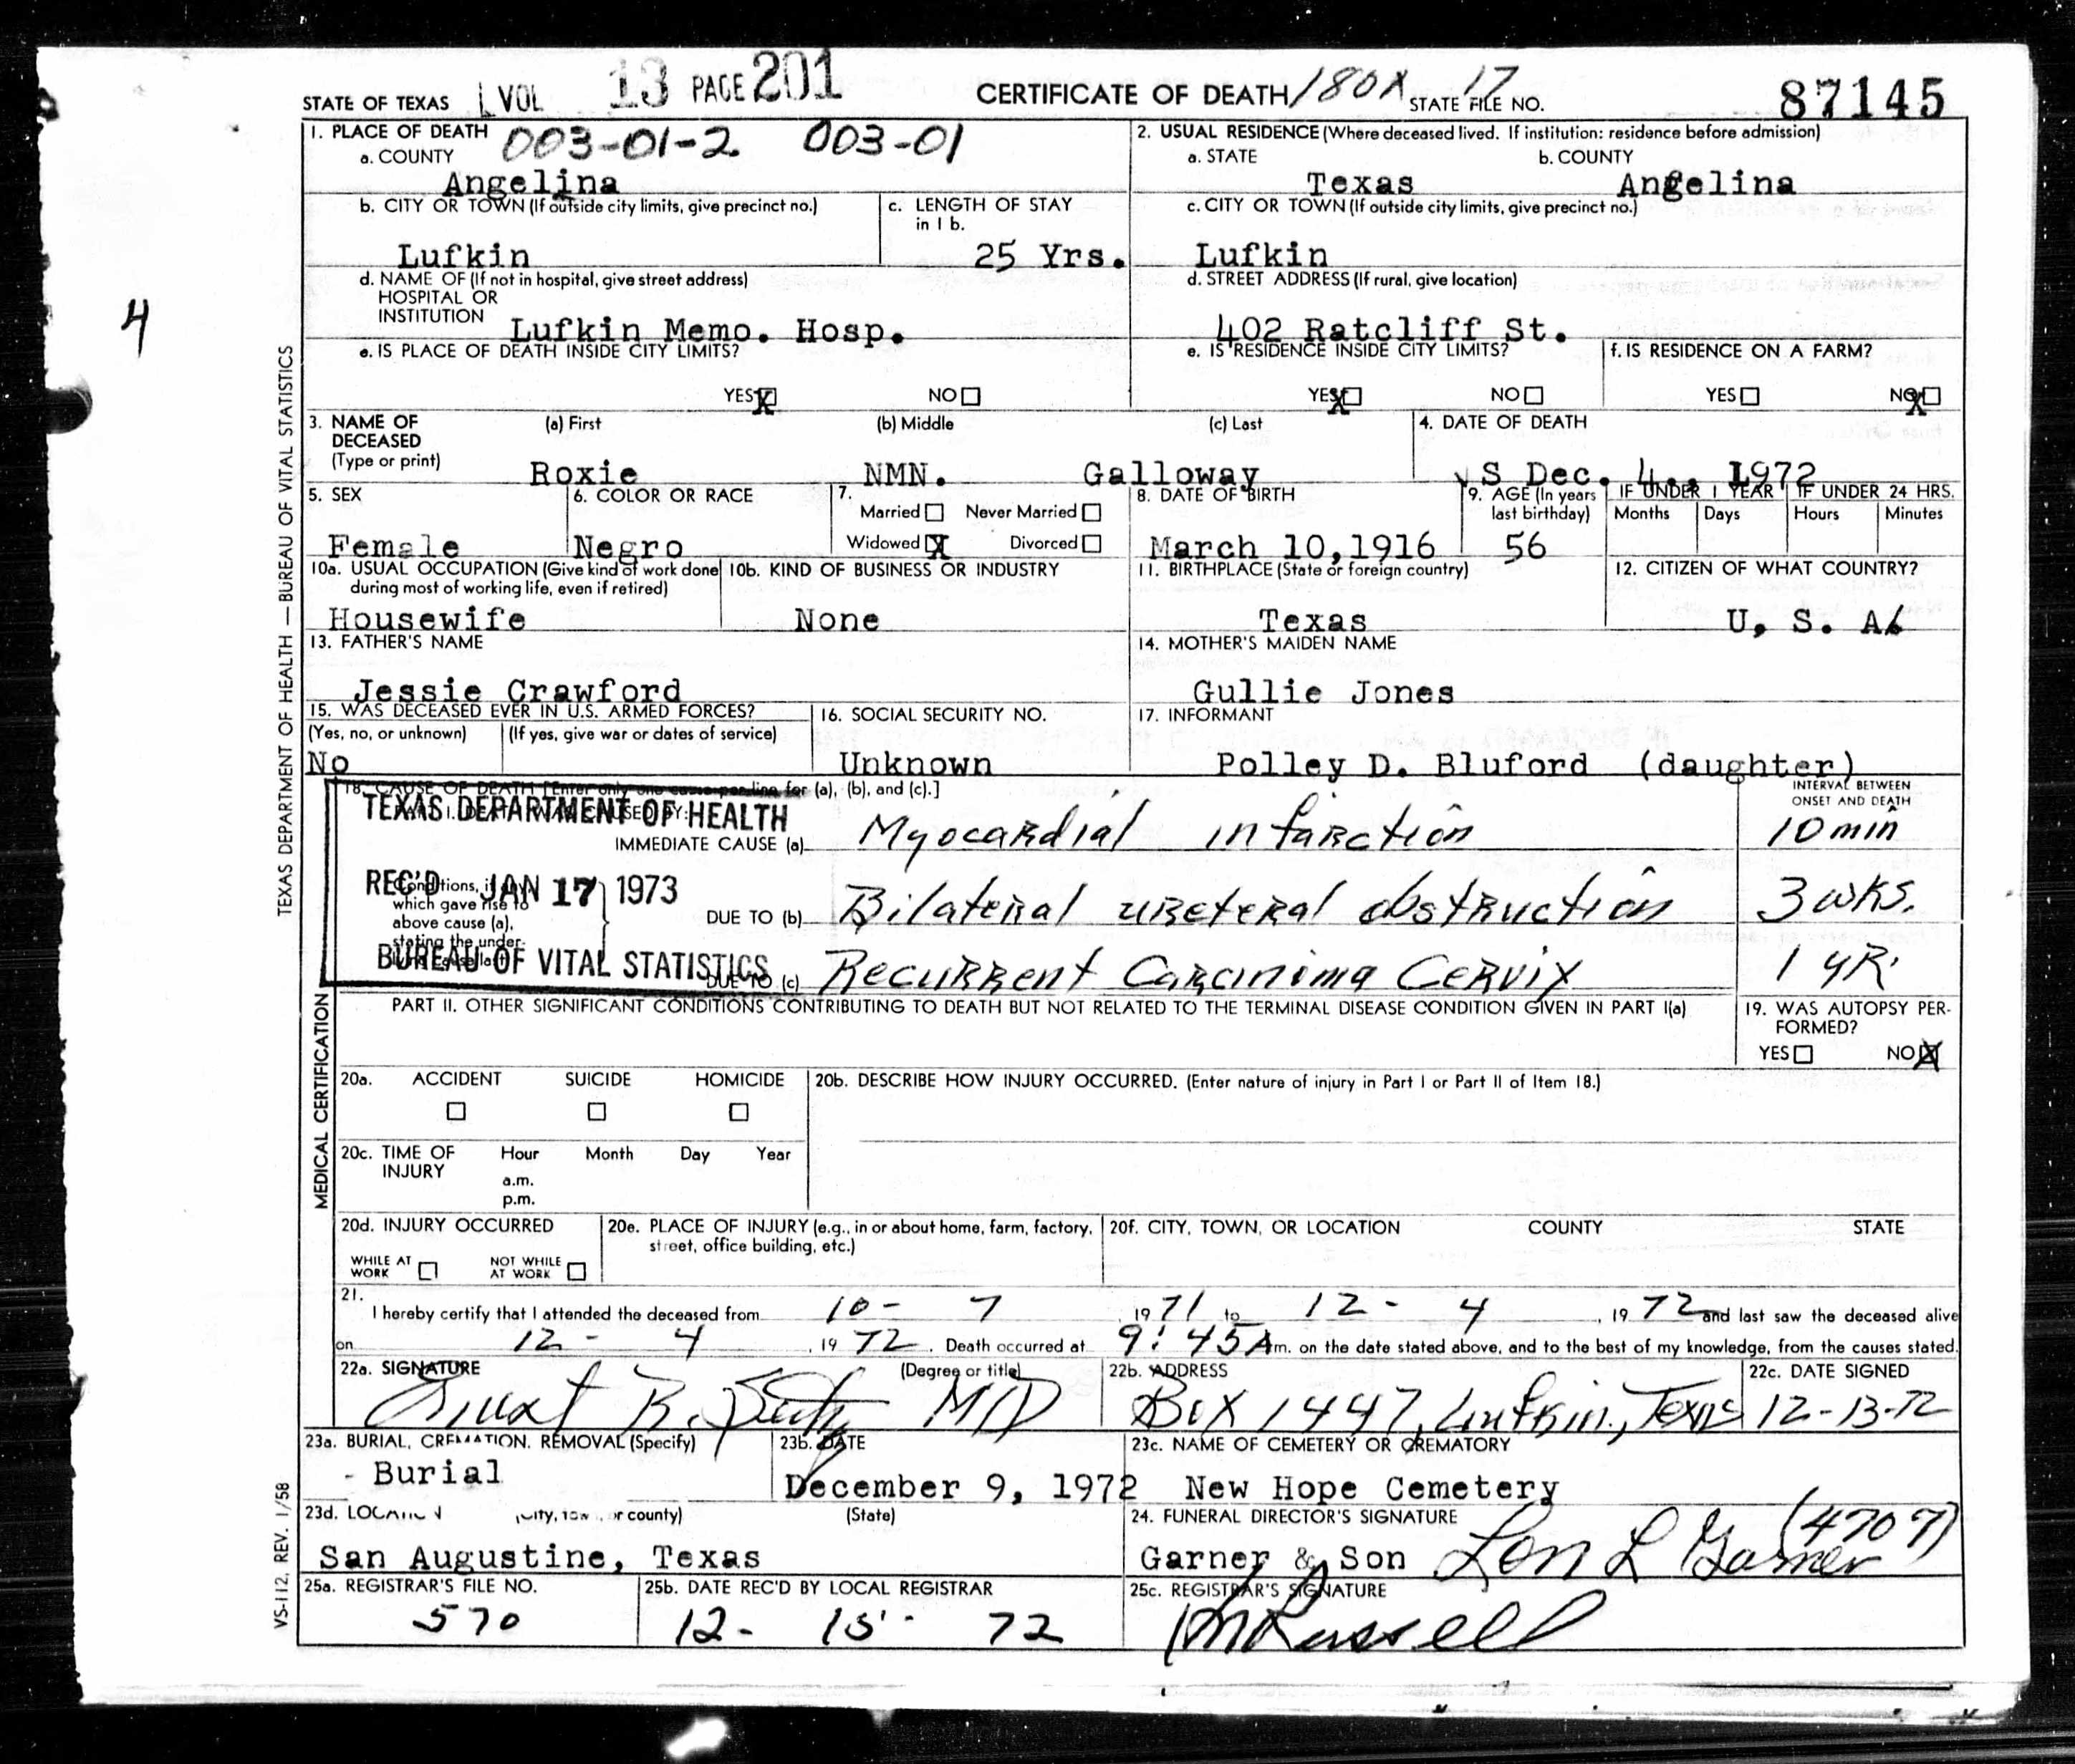 STATE OF TEXAS VOL 13 PAGE 201 CERTIFICATE OF DEATH 180X 17 STATE FILE NO. 87145
1. PLACE OF DEATH 003-01-2 003-01
a. COUNTY
Angelina
2. USUAL RESIDENCE (Where deceased lived. If institution: residence before admission)
a. STATE b. COUNTY
Texas Angelina
b. CITY OR TOWN (If outside city limits, give precinct no.)
Lufkin
c. LENGTH OF STAY
in 1 b.
25 Yrs.
c. CITY OR TOWN (If outside city limits, give precinct no.)
Lufkin
d. NAME OF (If not in hospital, give street address)
HOSPITAL OR
INSTITUTION Lufkin Memo. Hosp.
d. STREET ADDRESS (If rural, give location)
402 Ratcliff St.
e. IS PLACE OF DEATH INSIDE CITY LIMITS?
YES X NO
e. IS RESIDENCE INSIDE CITY LIMITS?
YES X NO
f. IS RESIDENCE ON A FARM?
YES NO X
4
3. NAME OF
DECEASED
(Type or print)
(a) First (b) Middle (c) Last
Roxie NMN. Galloway
4. DATE OF DEATH
S Dec. 4., 1972
5. SEX
Female
6. COLOR OR RACE
Negro
7.
Married Never Married
Widowed X Divorced
8. DATE OF BIRTH
March 10,1916
9. AGE (In years
last birthday)
56
IF UNDER 1 YEAR IF UNDER 24 HRS.
Months Days Hours Minutes
10a. USUAL OCCUPATION (Give kind of work done
during most of working life, even if retired)
Housewife
10b. KIND OF BUSINESS OR INDUSTRY
None
11. BIRTHPLACE (State or foreign country)
Texas
12. CITIZEN OF WHAT COUNTRY?
U, S. A
13. FATHER'S NAME
Jessie Crawford
14. MOTHER'S MAIDEN NAME
Gullie Jones
15. WAS DECEASED EVER IN U.S. ARMED FORCES?
(Yes, no, or unknown) (If yes, give war or dates of service)
No
16. SOCIAL SECURITY NO.
Unknown
17. INFORMANT
Polley D. Bluford (daughter)
18. CAUSE OF DEATH [Enter only one cause per line for (a), (b), and (c).]
TEXAS DEPARTMENT OF HEALTH
REC'D JAN 17 1973
BUREAU OF VITAL STATISTICS
IMMEDIATE CAUSE (a) Myocardial infarction
Conditions, if any,
which gave rise to
above cause (a),
stating the under-
DUE TO (b) Bilateral ureteral obstruction
DUE TO (c) Recurrent Carcinima Cervix
INTERVAL BETWEEN
ONSET AND DEATH
10 min
3 wks.
1 yr.
PART II. OTHER SIGNIFICANT CONDITIONS CONTRIBUTING TO DEATH BUT NOT RELATED TO THE TERMINAL DISEASE CONDITION GIVEN IN PART I(a)
19. WAS AUTOPSY PER-
FORMED?
YES NO X
20a. ACCIDENT SUICIDE HOMICIDE
20b. DESCRIBE HOW INJURY OCCURRED. (Enter nature of injury in Part I or Part II of Item 18.)
20c. TIME OF
INJURY
Hour Month Day Year
a.m.
p.m.
20d. INJURY OCCURRED
WHILE AT
WORK
NOT WHILE
AT WORK
20e. PLACE OF INJURY (e.g., in or about home, farm, factory,
street, office building, etc.)
20f. CITY, TOWN, OR LOCATION COUNTY STATE
21.
I hereby certify that I attended the deceased from 10-7, 1971 to 12-4, 1972 and last saw the deceased alive
on 12-4, 1972. Death occurred at 9:45 A m. on the date stated above, and to the best of my knowledge, from the causes stated.
22a. SIGNATURE (Degree or title)
R. MD
22b. ADDRESS
Box 1447, Lufkin, Texas
22c. DATE SIGNED
12-13-72
23a. BURIAL, CREMATION, REMOVAL (Specify)
- Burial
23b. DATE
December 9, 1972
23c. NAME OF CEMETERY OR CREMATORY
New Hope Cemetery
23d. LOCATION (City, town, or county) (State)
San Augustine, Texas
24. FUNERAL DIRECTOR'S SIGNATURE
Garner & Son Lon L Garner (4707)
25a. REGISTRAR'S FILE NO.
570
25b. DATE REC'D BY LOCAL REGISTRAR
12-15-72
25c. REGISTRAR'S SIGNATURE
Russell
TEXAS DEPARTMENT OF HEALTH — BUREAU OF VITAL STATISTICS
MEDICAL CERTIFICATION
VS-112, REV. 1/58